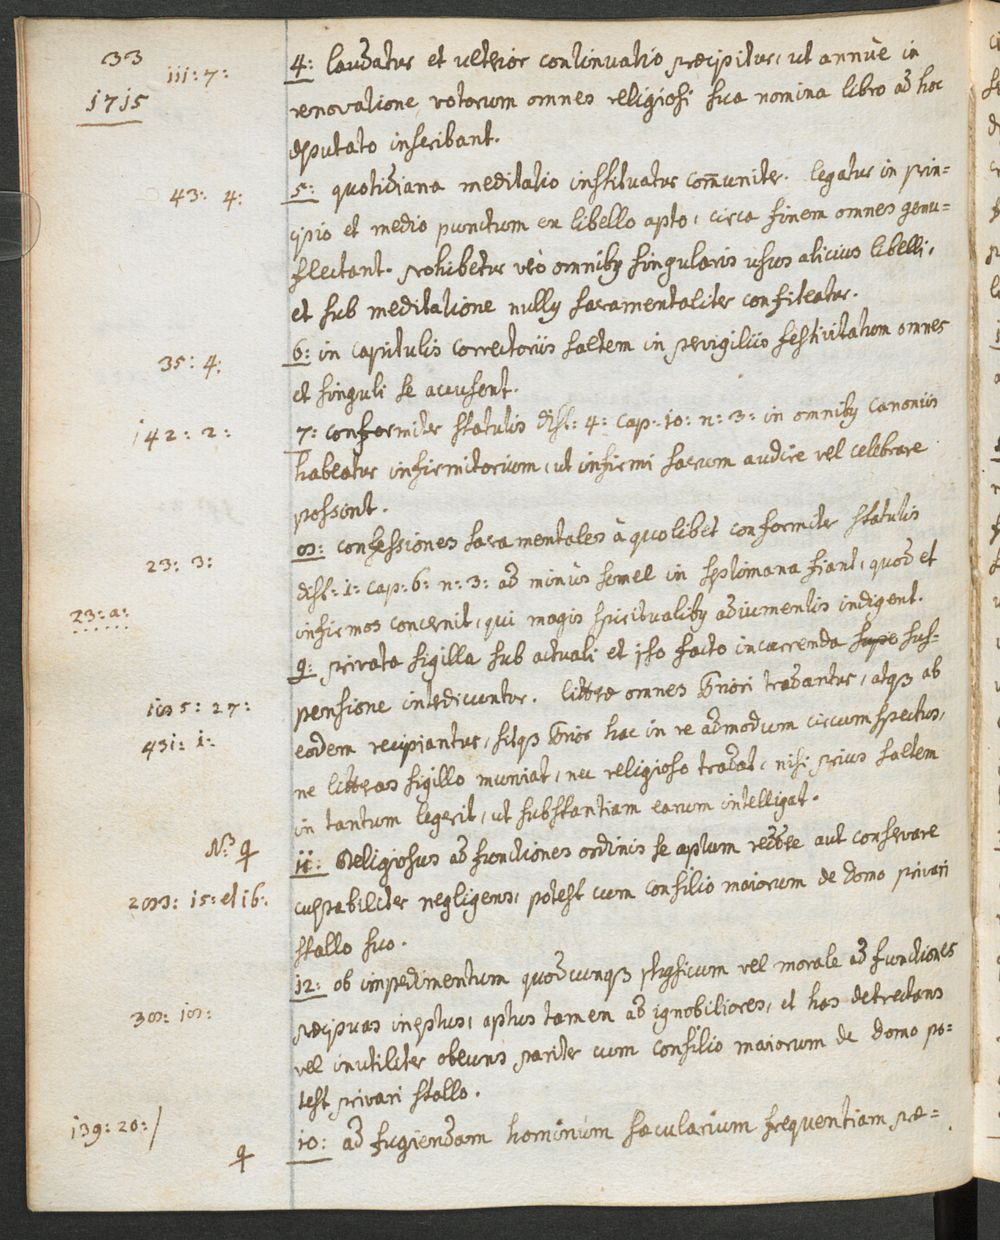 33
iii: 7:
1715
4: laudatur et ulterior continuatio præcipitur, ut annuè in
renovatione votorum omnes religiosi sua nomina libro ad hoc
deputato inscribant.
43: 4:
5: quotidiana meditatio instituatur com̄uniter. legatur in prin=
cipio et medio punctum ex libello apto, circa finem omnes genu=
flectant. prohibetur verò omnibꝫ singularis usus alicuius libelli,
et sub meditatione nullꝫ sacramentaliter confiteatur.
35: 4:
6: in capitulis correctoriis saltem in pervigiliis festivitatum omnes
et singuli se accusent.
142: 2:
7: conformiter statutis dist: 4: cap: 10: n: 3: in omnibꝫ canoniis
habeatur infirmitorium, ut infirmi sacrum audire vel celebrare
possint.
23: 3:
8: confessiones sacramentales à quolibet conformiter statutis
dist: 1: cap: 6: n: 3: ad minùs semel in septimana fiant, quod et
23: a:
infirmos concernit, qui magis spiritualibꝫ adiumentis indigent.
9: privata sigilla sub actuali et ipso facto incurrenda supe sus=
185: 27:
pensione interdicuntur. litteræ omnes Priori tradantur, atqꝫ ab
431: 1:
eodem recipiantur, sitqꝫ Prior hac in re admodum circumspectus,
ne litteras sigillo muniat, nec religioso tradat, nisi prius saltem
in tantum legerit, ut substantiam earum intelligat.
N.º 9
11: Religiosus ad functiones ordinis se aptum reddere aut conservare
283: 15: et 16:
culpabiliter negligens, potest cum consilio maiorum de domo privari
stallo suo.
12: ob impedimentum quodcunqꝫ physicum vel morale ad functiones
38: 18:
præcipuas ineptus, aptus tamen ad ignobiliores, et has detrectans
vel inutiliter obeuns pariter cum consilio maiorum de domo po=
test privari stallo.
139: 20: /
10: ad fugiendam hominum sæcularium frequentiam præ=
9